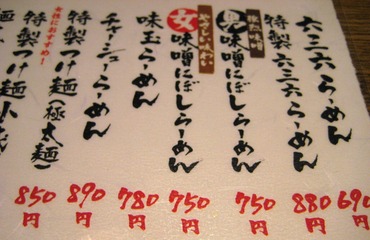 六三六らーめん
690
特製六三六らーめん
880円
豚骨味噌
男味噌にぼしらーめん
750円
やさしい味わい
女味噌にぼしらーめん
750円
味玉らーめん
780円
チャーシューらーめん
890円
女性におすすめ!
特製つけ麺(極太麺)
850円
つけ麺小